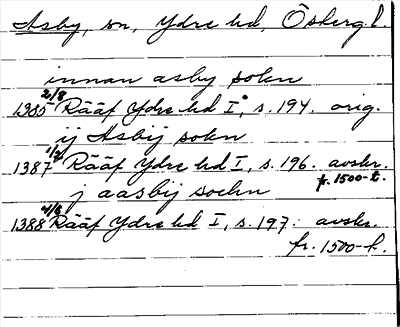 Asby, sn, Ydre hd, Östergl.
innan asby sokn
1385 2/8 Rääf Ydre hd I, s. 194. orig.
ij Asbij sokn
1387 1/2 Rääf Ydre hd I, s. 196. avskr. fr. 1500-t.
j aasbij sochn
1388 4/8 Rääf Ydre hd I, s. 197. avskr.
fr. 1500-t.